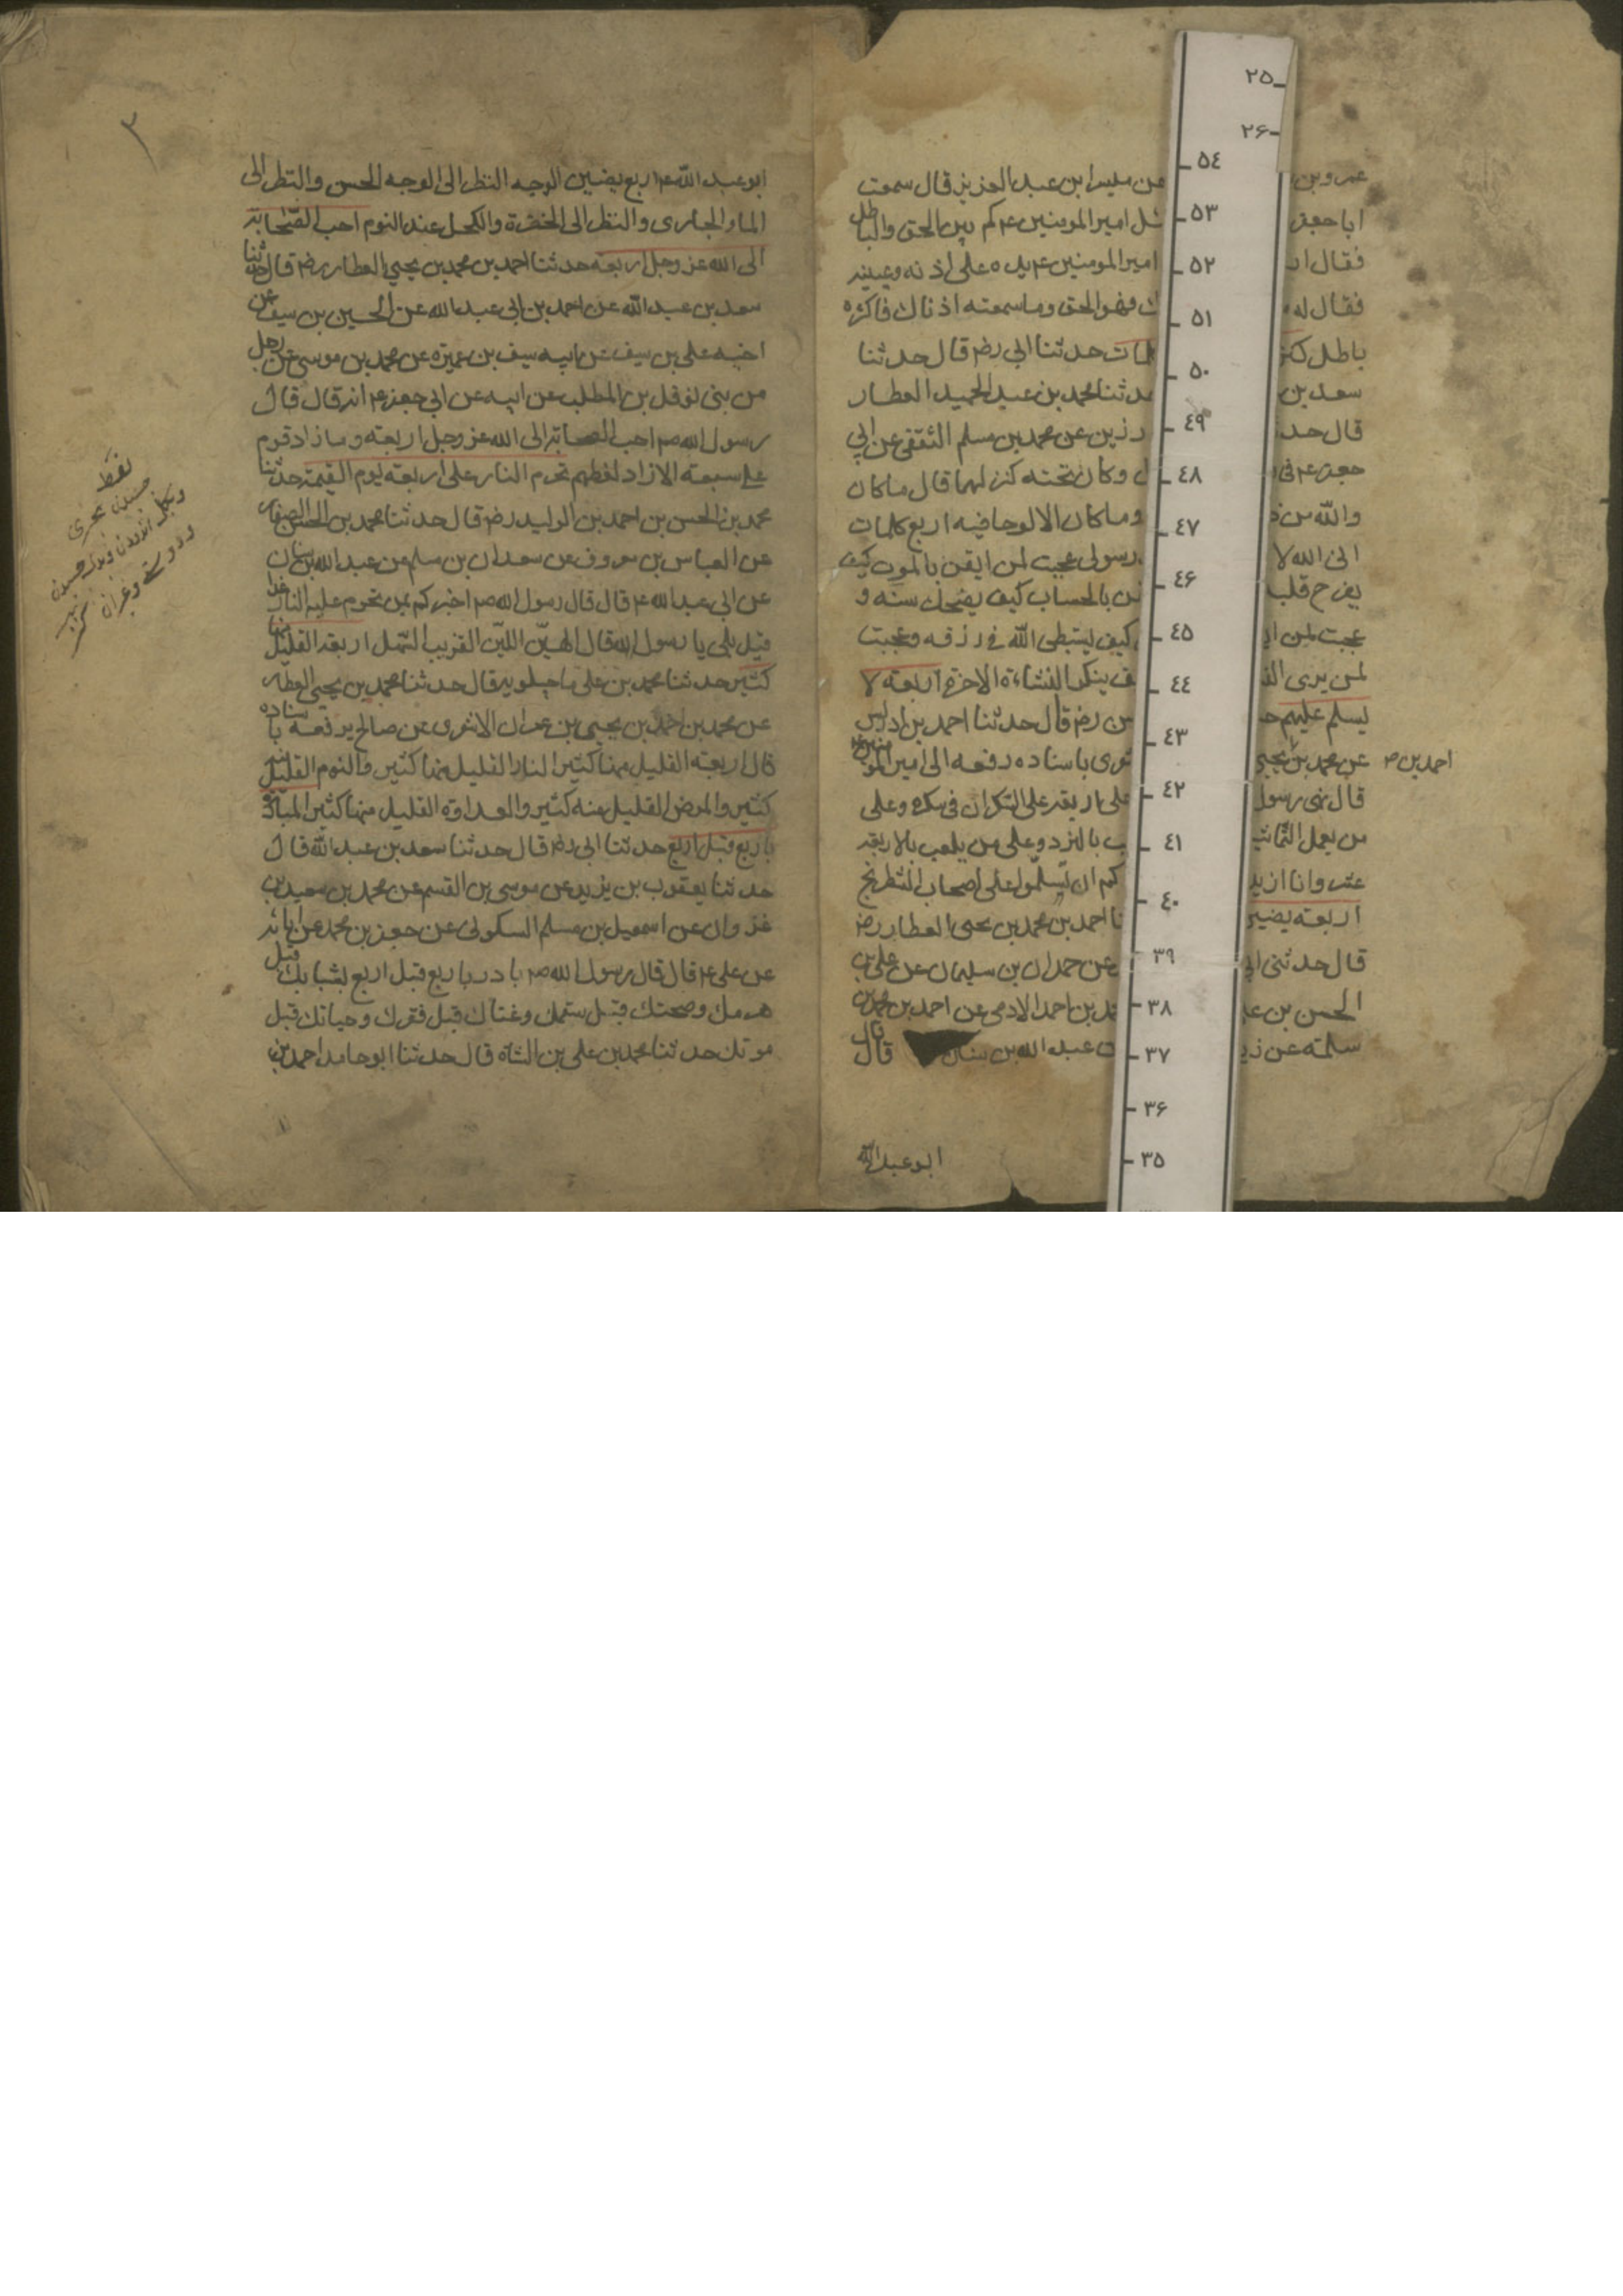 عمرو بن
عن ميسر ابن عبد العزيز قال سمعت
ابا جعفر
ئل امير المومنين ع م كم بين الحق والباطل
فقال ا
امير المومنين ع م يده على اذنه وعينيه
فقال
ك فهو الحق وما سمعته اذناك فاكثره
باطل كنز
مات حدثنا ابى رض قال حدثنا
سعد بن
حدثنا محمد بن عبد الحميد العطار
قال حد
رزين عن محمد بن مسلم الثقفى عن ابى
جعفر ع م فى
ل وكان تحته كنز لهما قال ما كان
والله من ذ
وما كان الا لوحا فيه اربع كلمات
انى الله لا
رسولى عجبت لمن ايقن بالموت كيف
يفرح قلبه
من بالحساب كيف يضحك سنه و
عجبت لمن ا
كيف يستبطى الله فى رزقه وعجبت
لمن يرى الن
ف ينكر النشاءة الاخرة اربعة لا
يسلم عليهم حد
ن رض قال حدثنا احمد بن ادريس
عن محمد بن يحيى
احمد بن
عرى باسناده رفعه الى امير المومنين ع م
قال نهى رسول
على اربعة على السكران فى سكره وعلى
من يعمل التماثيل
ب بالنرد وعلى من يلعب بالاربعة
عشر وانا ازيد
كم ان تسلموا على اصحاب الشطرنج
اربعة يضيئ
نا احمد بن محمد بن يحيى العطار رض
قال حدثنى ابى
عن حمدان بن سليمان عن على بن
الحسن بن
مد بن احمد الادمى عن احمد بن محمد بن
سلمة عن
ن عبد الله بن سنان قال قال
ابو عبد الله
٢٥
٢۶
٥٤
٥٣
٥٢
٥١
٥٠
٤٩
٤٨
٤٧
٤۶
٤٥
٤٤
٤٣
٤٢
٤١
٤٠
٣٩
٣٨
٣٧
٣۶
٣٥
٣
ابو عبد الله ع م اربع يضيئن الوجه النظر الى الوجه الحسن والنظر الى
الماء الجارى والنظر الى الخضرة والكحل عند النوم احب الصحابة
الى الله عز وجل اربعة حدثنا احمد بن محمد بن يحيى العطار رض قال حدثنا
سعد بن عبد الله عن احمد بن ابى عبد الله عن الحسين بن سيف عن
اخيه على بن سيف عن ابيه سيف بن عميرة عن محمد بن موسى عن رجل
من بنى نوفل بن المطلب عن ابيه عن ابى جعفر ع م انه قال قال
رسول الله ص م احب الصحابة الى الله عز وجل اربعة وما زاد قوم
على سبعة الا زاد لغطهم تحرم النار على اربعة يوم القيمة حدثنا
محمد بن الحسن بن احمد بن الوليد رض قال حدثنا محمد بن الحسن الصفار
عن العباس بن معروف عن سعدان بن مسلم عن عبد الله بن سنان
عن ابى عبد الله ع م قال قال رسول الله ص م اخبركم بمن تحرم عليه النار غدا
قيل بلى يا رسول الله قال الهين اللين القريب السهل اربعة القليل منها
كثير حدثنا محمد بن على ماجيلويه قال حدثنا محمد بن يحيى العطار
عن محمد بن احمد بن يحيى بن عمران الاشعرى عن صالح يرفعه باسناده
قال اربعة القليل منها كثير النار القليل منها كثير والنوم القليل منه
كثير والمرض القليل منه كثير والعداوة القليل منها كثير المبادرة
باربع قبل اربع حدثنا ابى رض قال حدثنا سعد بن عبد الله قال
حدثنا يعقوب بن يزيد عن موسى بن القسم عن محمد بن سعيد بن
غزوان عن اسمعيل بن مسلم السكونى عن جعفر بن محمد عن ابائه
عن على ع م قال قال رسول الله ص م بادر باربع قبل اربع بشبابك قبل
هرمك وصحتك قبل سقمك وغناك قبل فقرك وحياتك قبل
موتك حدثنا محمد بن على بن الشاه قال حدثنا ابو حامد احمد بن